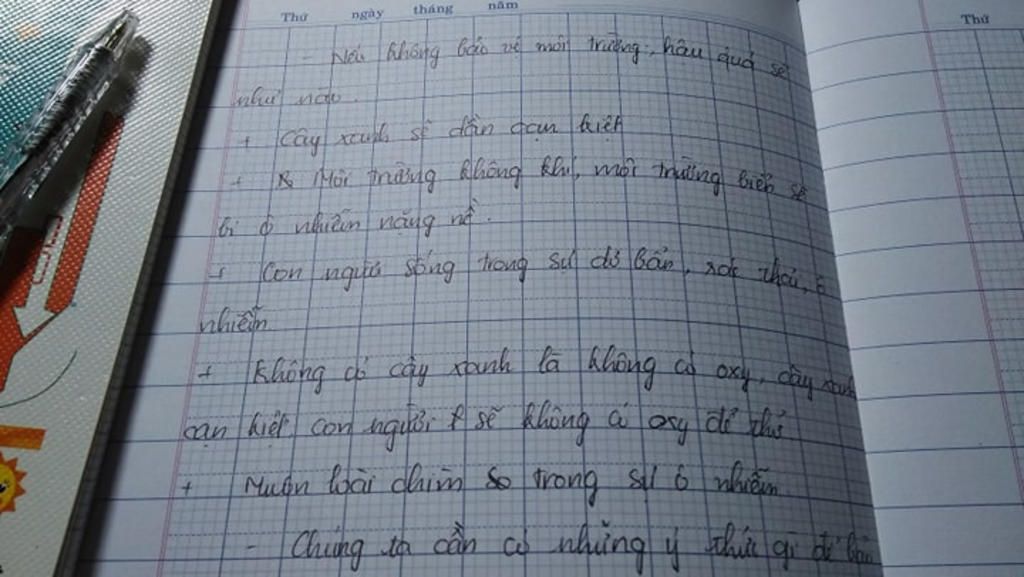 Thứ ngày tháng năm
Thứ
- Nếu không bảo vệ môi trường, hâu quả sẽ
như nào.
+ Cây xanh sẽ dần cạn kiệt
+ Môi trường không khí, môi trường biển sẽ
bị ô nhiễm nặng nề.
+ Con người sống trong sự dơ bẩn, rác thải, ô
nhiễm
+ Không có cây xanh là không có oxy, cây xanh
cạn kiệt con người sẽ không có oxy để thở
+ Muôn loài chìm trong sự ô nhiễm
- Chúng ta cần có những ý thức gì để bảo